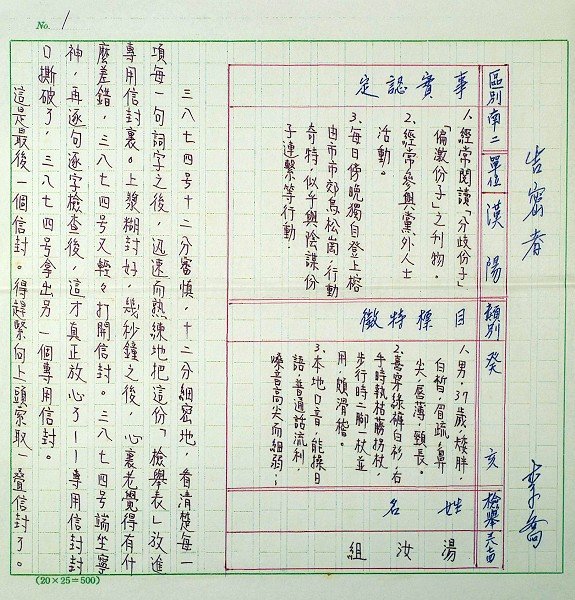 No. 1
告密者
李喬
區別 南二 單位 漢陽 類別 癸亥 檢舉
事實認定
1.經常閱讀「分歧份子」
「偏激份子」之刊物。
2.經常參與黨外人士
活動。
3.每日傍晚獨自登上榕
由市市郊鳥松崗,行動
奇特,似乎與陰謀份
子連繫等行動.
目標特徵
1.男,37歲,矮胖,
白皙,眉疏,鼻
尖,唇薄,頸長。
2.喜穿綠褲白衫,右
手時執枯藤拐杖,
步行時二腳一杖並
用,頗滑稽。
3.本地口音,能操日
語,普通話流利,
嗓音高尖而細弱;
姓名
湯汝組
三八七四号十二分審慎,十二分細密地,看清楚每一
項每一句詞字之後,迅速而熟練地把這份「檢舉表」放進
專用信封裏。上漿糊封好,幾秒鐘之後,心裏老覺得有什
麼差錯,三八七四号又輕々打開信封。三八七四号端坐寧
神,再逐句逐字檢查後,這才真正放心了——專用信封封
口撕破了,三八七四号拿出另一個專用信封。
這是最後一個信封。得趕緊向上頭索取一疊信封了。
(20×25=500)